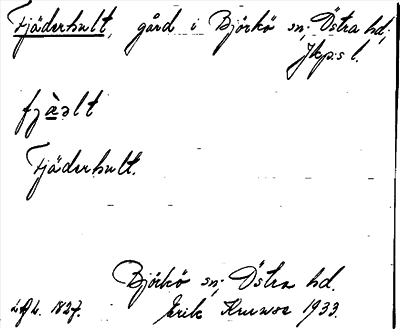 Fjäderhult, gård i Björkö sn; Östra hd;
Jkp:s l.
fjàəlt
Fjäderhult.
Björkö sn; Östra hd.
1827. Erik 1933.